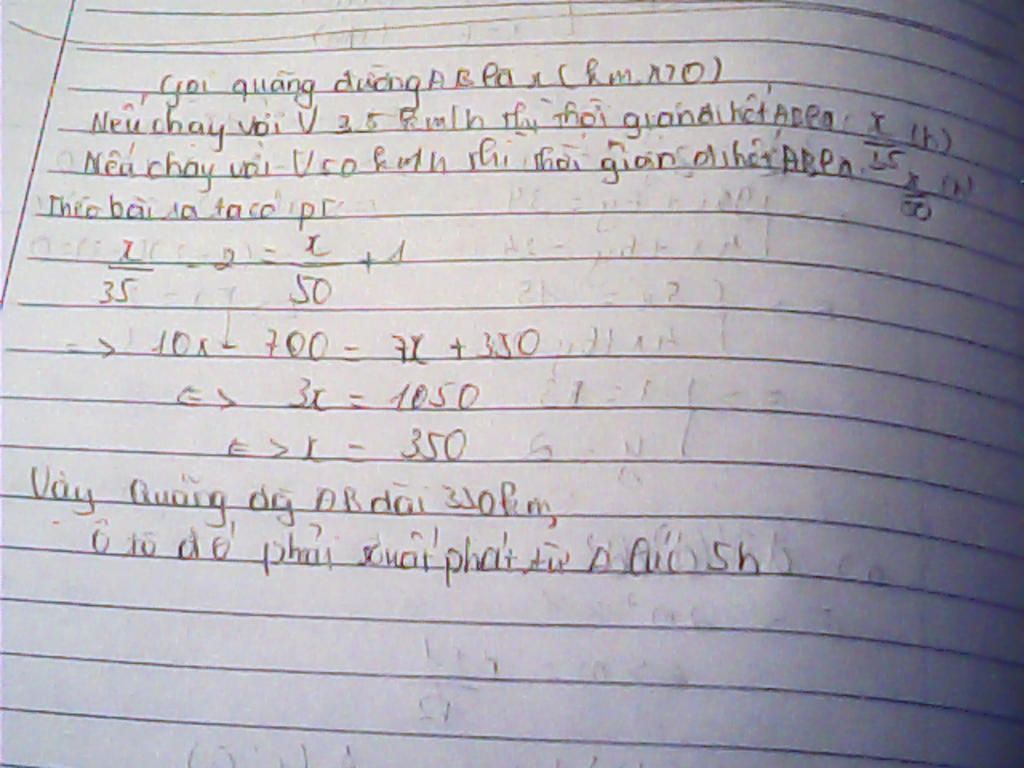 Gọi quãng đường AB là x (km, x>0)
Nếu chạy với V 35 km/h thì thời gian đi hết AB là: x/35 (h)
Nếu chạy với V 50 km/h thì thời gian đi hết AB là x/50 (h)
Theo bài ra ta có pt
x/35 - 2 = x/50 + 1
=> 10x - 700 = 7x + 350
<=> 3x = 1050
<=> x = 350
Vậy Quãng đg AB dài 350 km,
ô tô đó phải xuất phát từ A lúc 5h